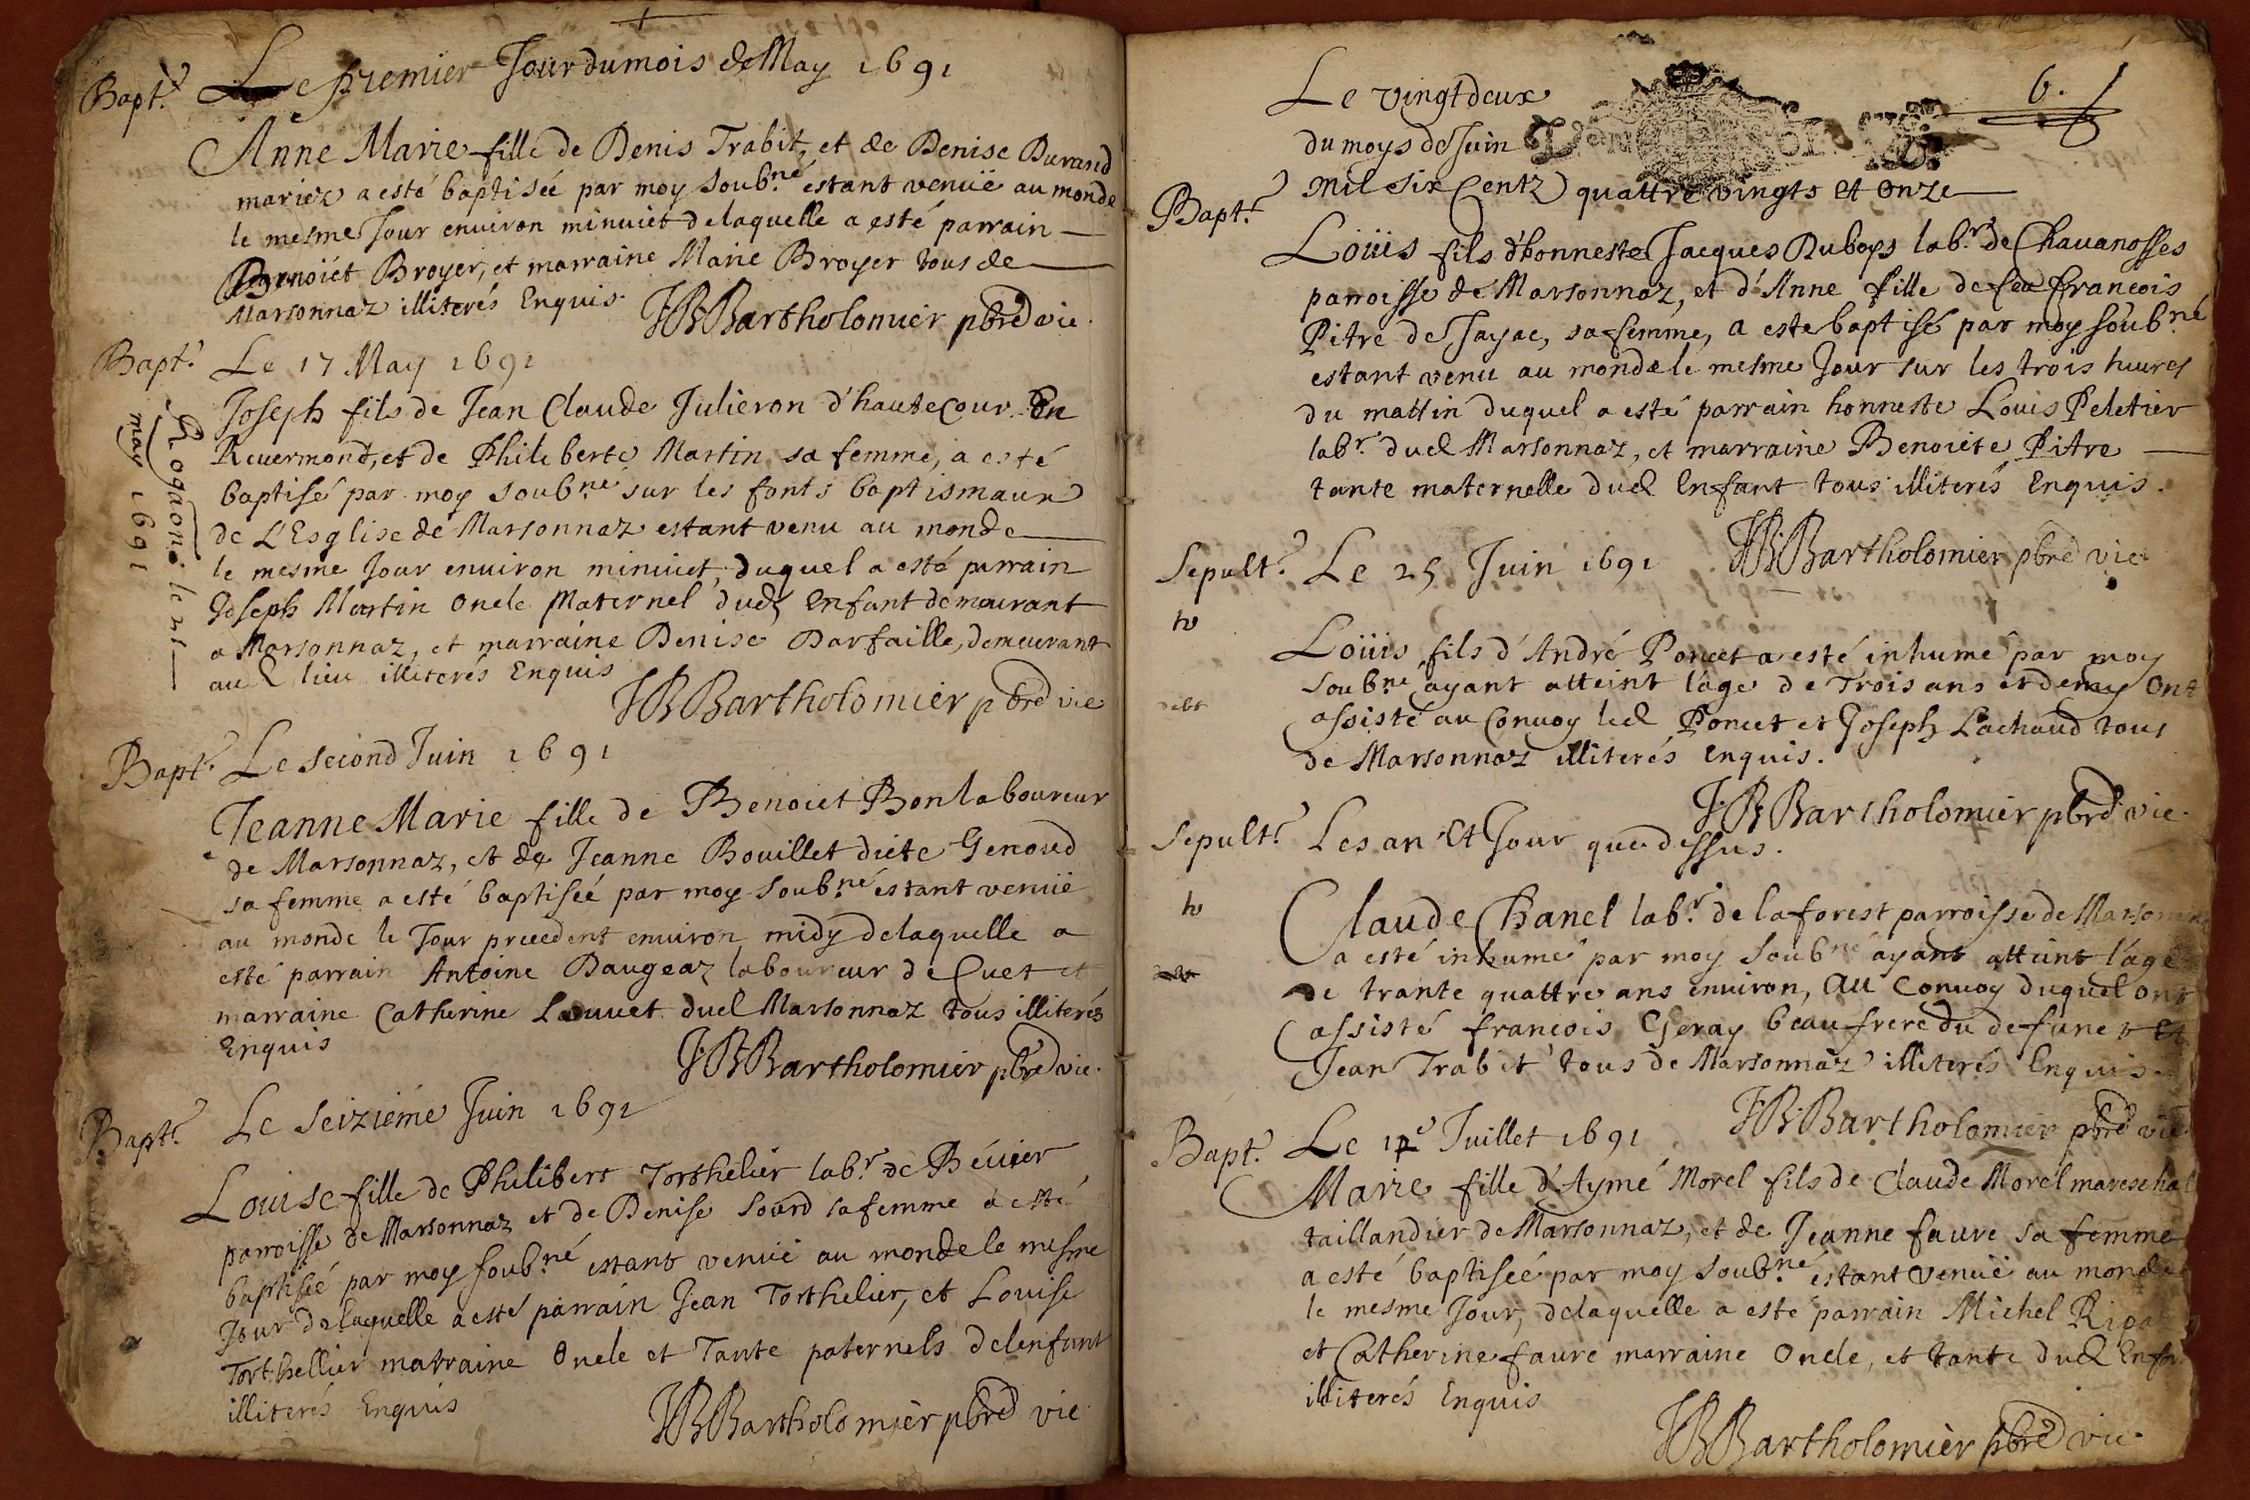 Bapt.e Le premier Jour du mois de May 1691
Anne Marie fille de Denis Trabit, et de Denise Durand
mariez a esté baptisée par moy soub.né estant venuë au monde
le mesme Jour environ minuiet delaquelle a esté parrain
Benoiet Broyer, et marraine Marie Broyer tous de
Marsonnaz illiterés Enquis. JBBartholomier pbre vic.
Bapt.e Le 17 May 1691
Joseph fils de Jean Claude Julieron d'hautecour En
Reuermond, et de Philiberte Martin sa femme, a esté
baptisé par moy soub.né sur les fonts baptismaux
de L'Esglise de Marsonnaz estant venu au monde
le mesme Jour enuiron minuiet, duquel a esté parrain
Joseph Martin Oncle Maternel dud Enfant demeurant
a Marsonnaz, et marraine Denise Darfaille, demeurant
aud lieu illiterés Enquis
JBBartholomier pbre vic
Rogaõn. le 21
may 1691
Bapt.e Le second Juin 1691
Jeanne Marie fille de Benoiet Bon laboureur
de Marsonnaz, et de Jeanne Bouillet diete Genoud
sa femme a esté baptisée par moy soub.né estant venuë
au monde le Jour precedent enuiron midy delaquelle a
esté parrain Antoine Daugeaz laboureur de Cuet et
marraine Catherine Louuet dud Marsonnaz tous illiterés
Enquis JBBartholomier pbre vic.
Bapt.e Le seiziéme Juin 1691
Louise fille de Philibert Torthelier lab.r de Béuier
parroisse de Marsonnaz et de Denise Sourd sa femme a esté
baptisée par moy soub.né estant venuë au monde le mesme
Jour delaquelle a esté parrain Jean Torthelier, et Louise
Torthellier marraine Oncle et Tante paternels delenfant
illiterés Enquis
JBBartholomier pbre vic
6.
Le vingtdeux
du moys de Juin
mil six Centz quattre vingts et Onze
Bapt.e
Loüis fils d'honneste Jacques Duboys lab.r de Chauanosses
parroisse de Marsonnaz, et d'Anne fille de feu francois
Pitre de Jayac, sa femme, a esté baptisé par moy soub.né
estant venu au monde le mesme Jour sur les trois heures
du mattin duquel a esté parrain honneste Louis Peletier
lab.r dud Marsonnaz, et marraine Benoiete Pitre
tante maternelle dud Enfant tous illiterés Enquis.
JBBartholomier pbre vic
Sepult.e Le 25 Juin 1691
Loüis fils d'André Poncet a esté inhumé par moy
soub.né ayant atteint l'age de Trois ans et demy Ont
assisté au Conuoy led Poncet et Joseph Lachaud tous
de Marsonnaz illiterés Enquis.
JBBartholomier pbre vic.
Sepult.e Les an et Jour que dessus.
Claude Chanel lab.r de la forest parroisse de
a esté inhumé par moy soub.né ayant atteint l'age
de trante quattre ans enuiron, au Conuoy duquel ont
assisté francois Geray beaufrere du defunct et
Jean Trabit tous de Marsonnaz illiterés Enquis
JBBartholomier pbre vic.
Bapt.e Le Juillet 1691
Marie fille d'Aymé Morel fils de Claude Morel
taillandier de Marsonnaz, et de Jeanne faure sa femme
a esté baptisée par moy soub.né estant venuë au monde
le mesme Jour, delaquelle a esté parrain Michel
et Catherine faure marraine Oncle, et tante dud
illiterés Enquis
JBBartholomier pbre vic.